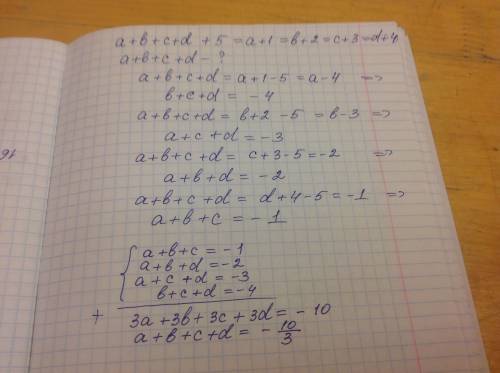 a+b+c+d+5=a+1=b+2=c+3=d+4
a+b+c+d-?
a+b+c+d=a+1-5=a-4 =>
b+c+d=-4
a+b+c+d=b+2-5=b-3 =>
a+c+d=-3
a+b+c+d=c+3-5=-2 =>
a+b+d=-2
a+b+c+d=d+4-5=-1 =>
a+b+c=-1
{a+b+c=-1
a+b+d=-2
a+c+d=-3
b+c+d=-4
+
3a+3b+3c+3d=-10
a+b+c+d=-10/3